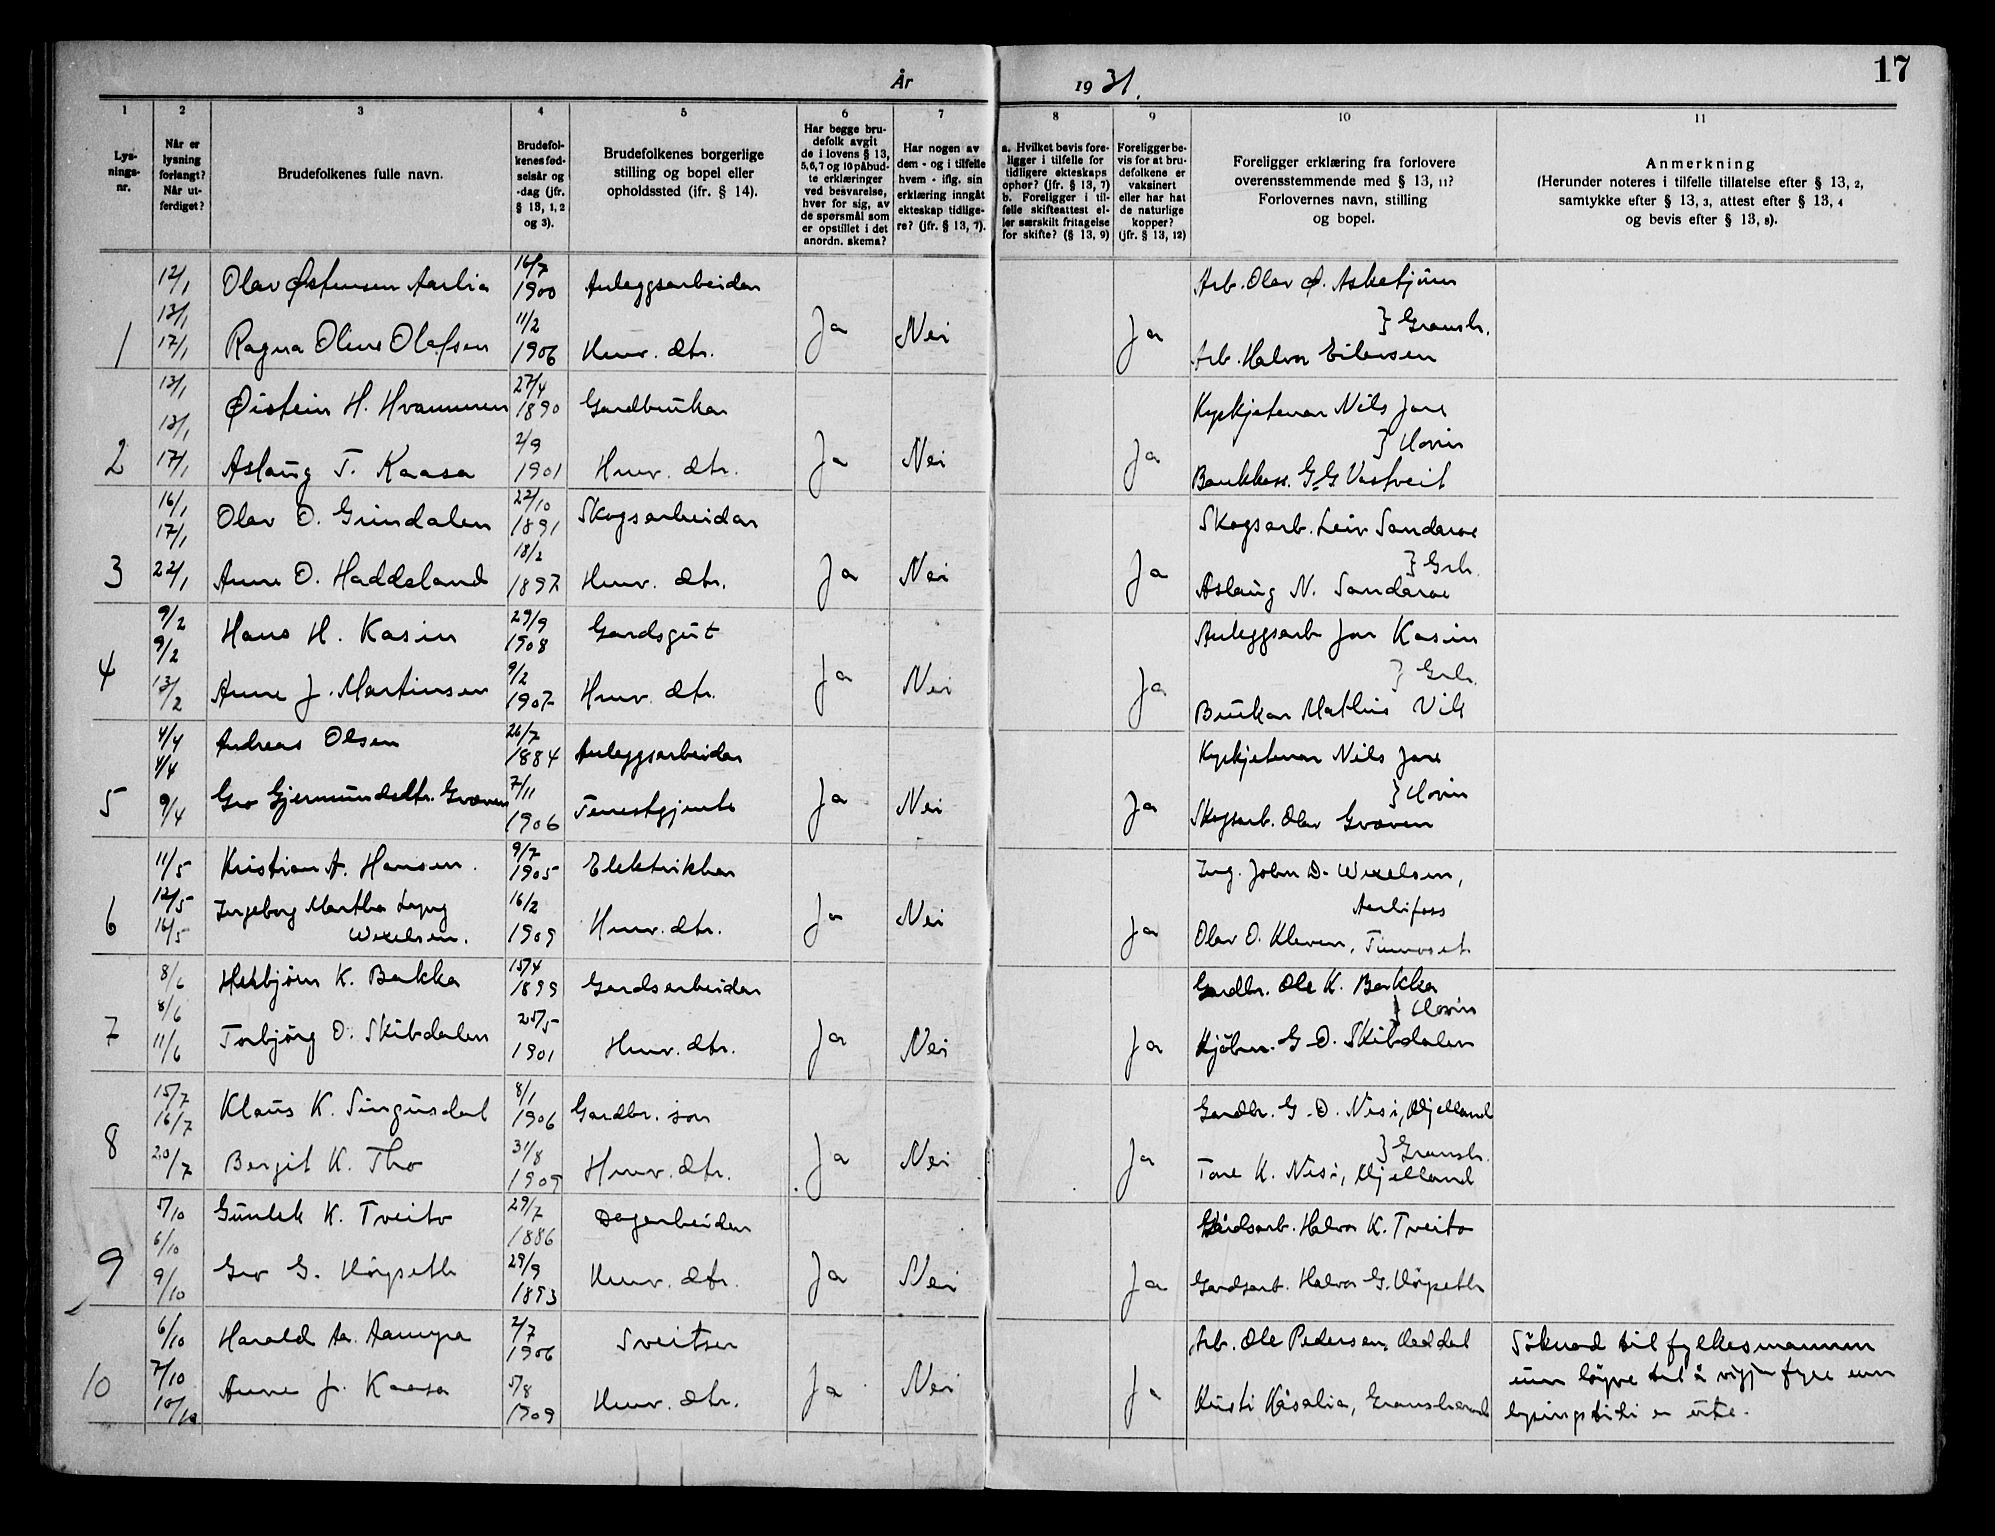 År 1931.
17
1
2
3
4
5
6
7
8
9
10
11
Lys-
nings-
nr.
Når er
lysning
forlangt?
Når ut-
ferdiget?
Brudefolkenes fulle navn.
Brudefol-
kenes fød-
selsår og
-dag (jfr.
§ 13, 1, 2
og 3).
Brudefolkenes borgerlige
stilling og bopel eller
opholdssted (ifr. § 14).
Har begge bru-
defolk avgit
de i lovens § 13,
5,6,7 og 10 påbud-
te erklæringer
ved besvarelse,
hver for sig, av
de spørsmål som
er opstillet i det
anordn. skema?
Har nogen av
dem - og i tilfelle
hvem - iflg. sin
erklæring inngåt
ekteskap tidlige-
re? (jfr. § 13, 7).
a. Hvilket bevis fore-
ligger i tilfelle for
tidligere ekteskaps
ophør? (jfr. § 13, 7)
b. Foreligger i til-
felle skifteattest el-
ler særskilt fritagelse
for skifte? (§ 13, 9)
Foreligger be-
vis for at bru-
defolkene er
vaksinert
eller har hat
de naturlige
kopper?
(jfr. § 13, 12)
Foreligger erklæring fra forlovere
overensstemmende med § 13, 11?
Forlovernes navn, stilling
og bopel.
Anmerkning
(Herunder noteres i tilfelle tillatelse efter § 13, 2,
samtykke efter § 13, 3, attest efter § 13, 4
og bevis efter § 13, 8).
12/1 Olav Østensen Aarlia 16/7 1900 Anleggsarbeidar Arb. Olav Ø. Asketjønn
13/1 } Gransh.
1 17/1 Ragna Oline Olafsen 11/2 1906 Huv. dtr. Ja Nei Ja Arb. Halvor Eilevsen
13/1 Øistein H. Hvammen 27/4 1890 Gardbrukar Kyrkjetenar Nils Jore
13/1 } Hovin
2 17/1 Aslaug T. Kaasa 2/9 1901 Huv. dtr. Ja Nei Ja Bankkass. G. G. Vastveit
16/1 Olav O. Grindalen 22/10 1891 Skogsarbeidar Skogsarb. Leiv Sandaroe
17/1 } Grh.
3 22/1 Anne O. Haddeland 18/2 1897 Huv. dtr. Ja Nei Ja Aslaug N. Sandaroe
9/2 Hans H. Kasin 29/9 1908 Gardsgut Anleggsarb Jon Kasin
9/2 } Grh.
4 13/2 Anne J. Martinsen 9/2 1907 Huv. dtr. Ja Nei Ja Brukar Mathis Vik
4/4 Andreas Olsen 26/7 1884 Anleggsarbeidar Kyrkjetenar Nils Jore
4/4 } Hovin
5 9/4 Gro Gjermundsdtr. Græven 7/11 1906 Tenestgjente Ja Nei Ja Skogsarb. Olav Græven
11/5 Kristian A. Hansen. 9/7 1905 Elektrikkar Ing. John D. Wexelsen,
12/5 Ingeborg Martha Lyng Aarlifoss
6 16/5 Wexelsen. 16/2 1909 Huv. dtr. Ja Nei Ja Olav O. Kleven, Tinnoset
8/6 Herbjørn K. Bakka 15/4 1899 Gardsarbeidar Gardbr. Ole K. Bakka
8/6 } Hovin
7 11/6 Torbjørg O. Skibdalen 25/5 1901 Huv. dtr. Ja Nei Ja Kjøbm. G. O. Skibdalen
15/7 Klaus K. Singusdal 8/1 1906 Gardbr. son Gardbr. G. O. Nisi, Hjelland
16/7 } Gransh.
8 20/7 Bergit K. Tho 31/8 1909 Huv. dtr. Ja Nei Ja Tone K. Nisi, Hjelland
5/10 Gunlek K. Tveito 29/7 1886 Dagarbeidar Gardsarb. Halvor K. Tveito
6/10
9 9/10 Gro G. Høyseth 29/9 1893 Huv. dtr. Ja Nei Ja Gardsarb. Halvor G. Høyseth
6/10 Harald Aa. Aamyra 2/7 1906 Sveitser Arb. Ole Pedersen, Heddal Söknad til fylkesmannen
7/10 um löyve til å vigja fyre enn
10 10/10 Anne J. Kaasa 5/8 1909 Huv. dtr. Ja Nei Ja Kristi Kåsalia, Gransherad lysingstidi er ute.